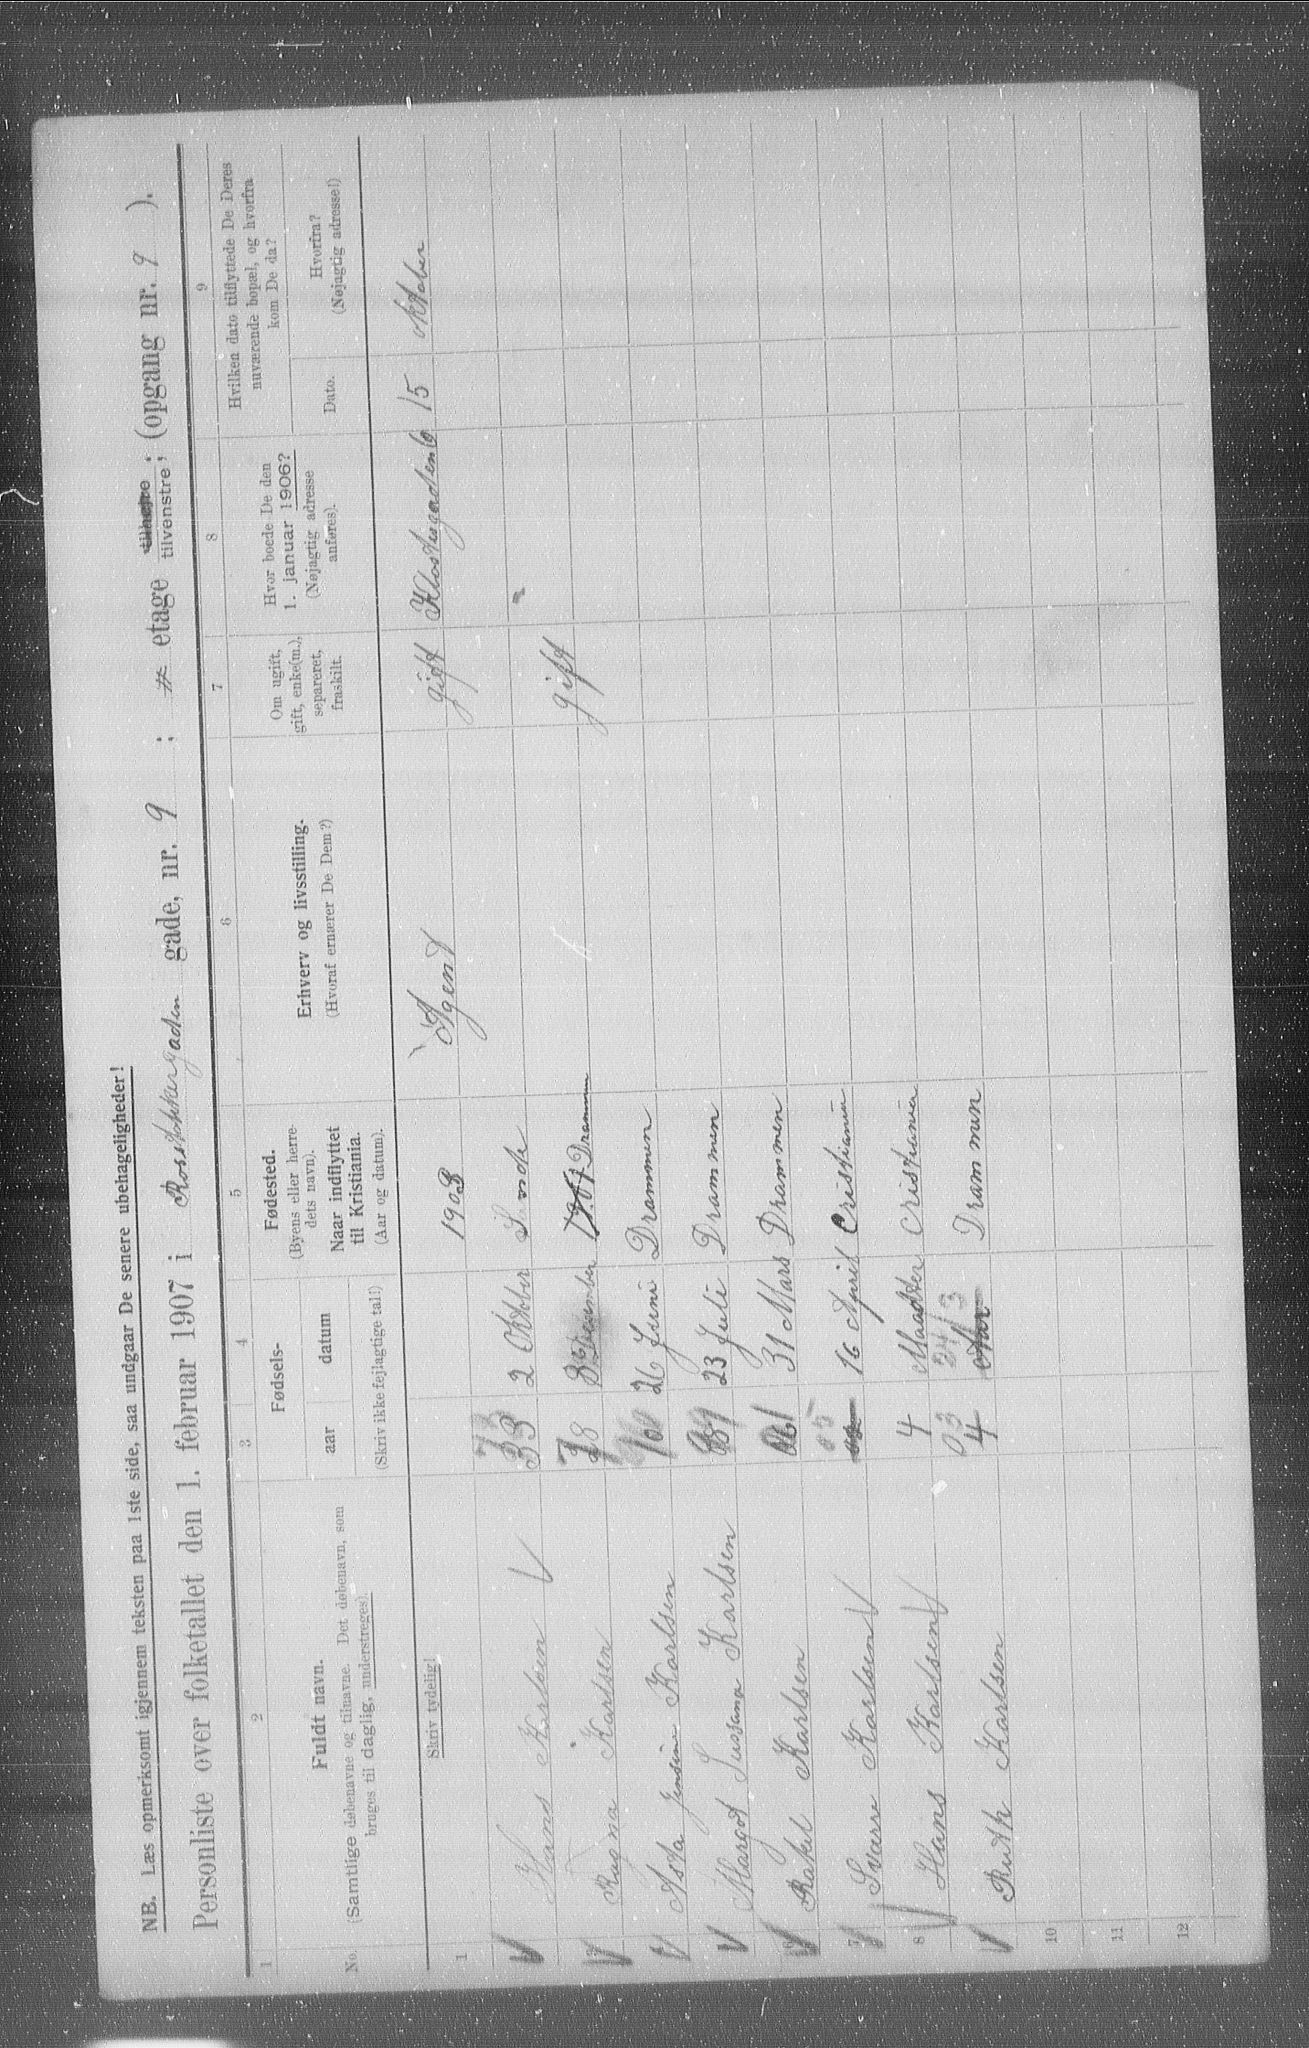 NB. Læs opmerksomt igjennem teksten paa 1ste side, saa undgaar De senere ubehageligheder!
Personliste over folketallet den 1. februar 1907 i Rosstokkergaden gade, nr. 9 ; # etage tilhøjre tilvenstre ; (opgang nr. 9 ).
1 2 3 4 5 6 7 8 9
No. Fuldt navn.
(Samtlige døbenavne og tilnavne. Det døbenavn, som
bruges til daglig, understreges).
Fødsels-
aar datum
(Skriv ikke fejlagtige tal!)
Fødested.
(Byens eller herre-
dets navn).
Naar indflyttet
til Kristiania.
(Aar og datum).
Erhverv og livsstilling.
(Hvoraf ernærer De Dem?)
Om ugift,
gift, enke(m.),
separeret,
fraskilt.
Hvor boede De den
1. januar 1906?
(Nøjagtig adresse
anføres).
Hvilken dato tilflyttede De Deres
nuværende bopæl, og hvorfra
kom De da?
Dato.
Hvorfra?
(Nøjagtig adresse!)
Skriv tydelig!
1 1903 Agent gift Klostergaden 6 15 oktober
Hans Karlsen 33 2 Oktober Sande
Ragna Karlsen 78 Desember Drammen gift
Asta Jensine Karlsen 26 Juni Drammen
Margot Sussana Karlsen 23 Juli Drammen
Rakel Karlsen 31 Mars Drammen
7 Sværre Karlsen 05 16 April Cristiania
8 Hans Karlsen 4 Cristiania
Ruth Karlsen 03 4 24/3 Aar Drammen
10
11
12